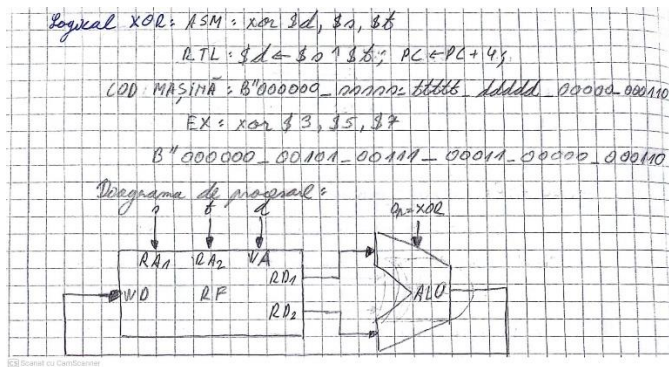 Logical XOR: ASM: xor $d, $s, $t
RTL: $d ← $s ^ $t; PC ← PC + 4;
COD MAȘINĂ: B"000000_sssss_ttttt_ddddd_00000_000110
EX: xor $3, $5, $7
B"000000_00101_00111_00011_00000_000110
Diagrama de procesare:
s t d op=XOR
RA1 RA2 WA
RD1
WD RF ALU
RD2
Scanat cu CamScanner